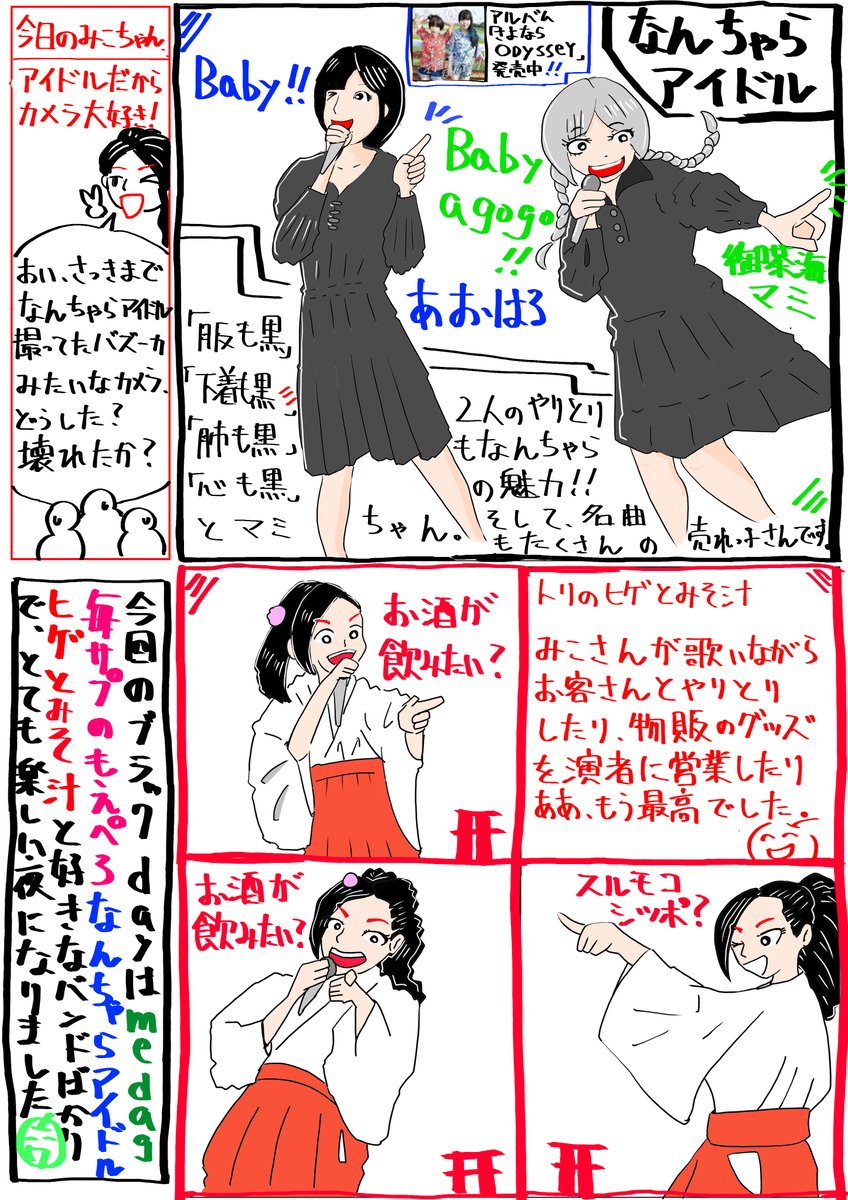 なんちゃら
アイドル
アルバム
さよなら
Odyssey」
発売中!!
Baby!!
Baby
agogo
!!
あおはる
御喋海
マミ
「服も黒」
「下着も黒」
「肺も黒」
「心も黒」
とマミ
ちゃん。
2人のやりとり
もなんちゃら
の魅力!!
そして、名曲
もたくさんの
売れっ子さんです。
今日のみこちゃん
アイドルだから
カメラ大好き!
おい、さっきまで
なんちゃらアイドル
撮ってたバズーカ
みたいなカメラ、
どうした?
壊れたか?
トリのヒゲとみそ汁
みこさんが歌いながら
お客さんとやりとり
したり、物販のグッズ
を演者に営業したり
ああ、もう最高でした。
お酒が
飲みたい?
スルモコ
シッポ?
お酒が
飲みたい?
今回のブラックdayはmedag
毎サプのもえぺろなんちゃらアイドル
ヒゲとみそ汁と好きなバンドばかり
で、とても楽しい夜になりました